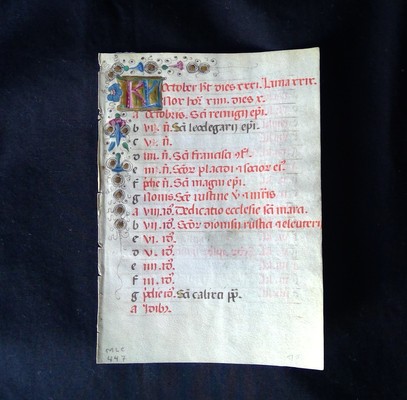 KL October ht dies xxxi. Luna xxix.
Nox hor xiiii. dies x.
a Octobris. Sci remigii epi.
b vi. n. Sci leodegarii epi.
c v. n.
d iiii. n. Sci francisci
e iii. n. placidi
f pdie n. Sci magni epi.
g Nonis. Sce iustine v. 
a viii. id. Dedicatio ecclesie sci marci.
b vii. id. dionisii rustici eleutterii
c vi. id.
d v. id.
e iiii. id.
f iii. id.
g pdie id. Sci calixti pp.
a Idib.